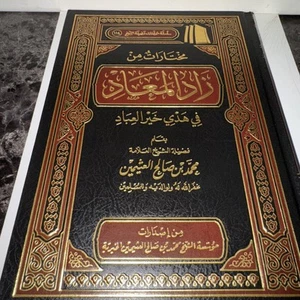 سلسلة مؤلفات فضيلة الشيخ (١٦٥)
مختارات من
زاد المعاد
في هدي خير العباد
بقلم
فضيلة الشيخ العلامة
محمد بن صالح العثيمين
غفر الله له ولوالديه وللمسلمين
من إصدارات
مؤسسة الشيخ محمد بن صالح العثيمين الخيرية